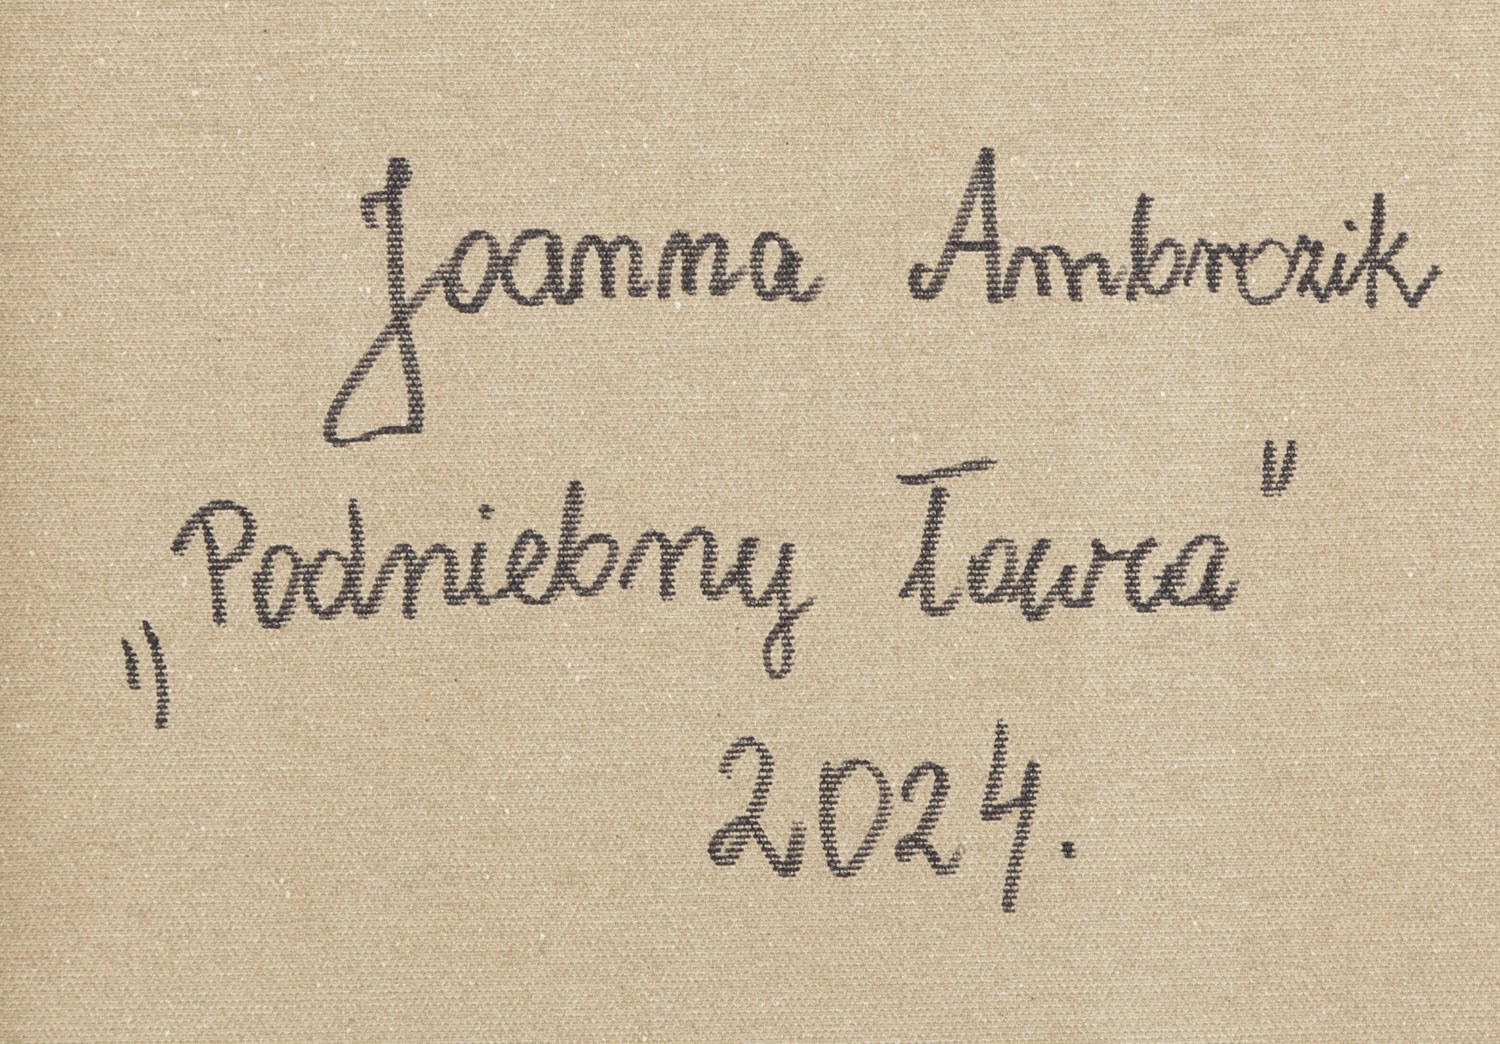 Joanna Ambrozik
„Podniebny Łowca"
2024.